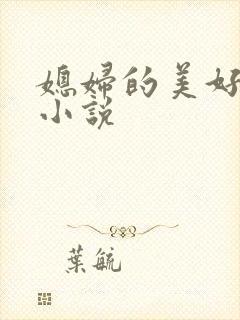 媳婦的美好
小說
葉毓